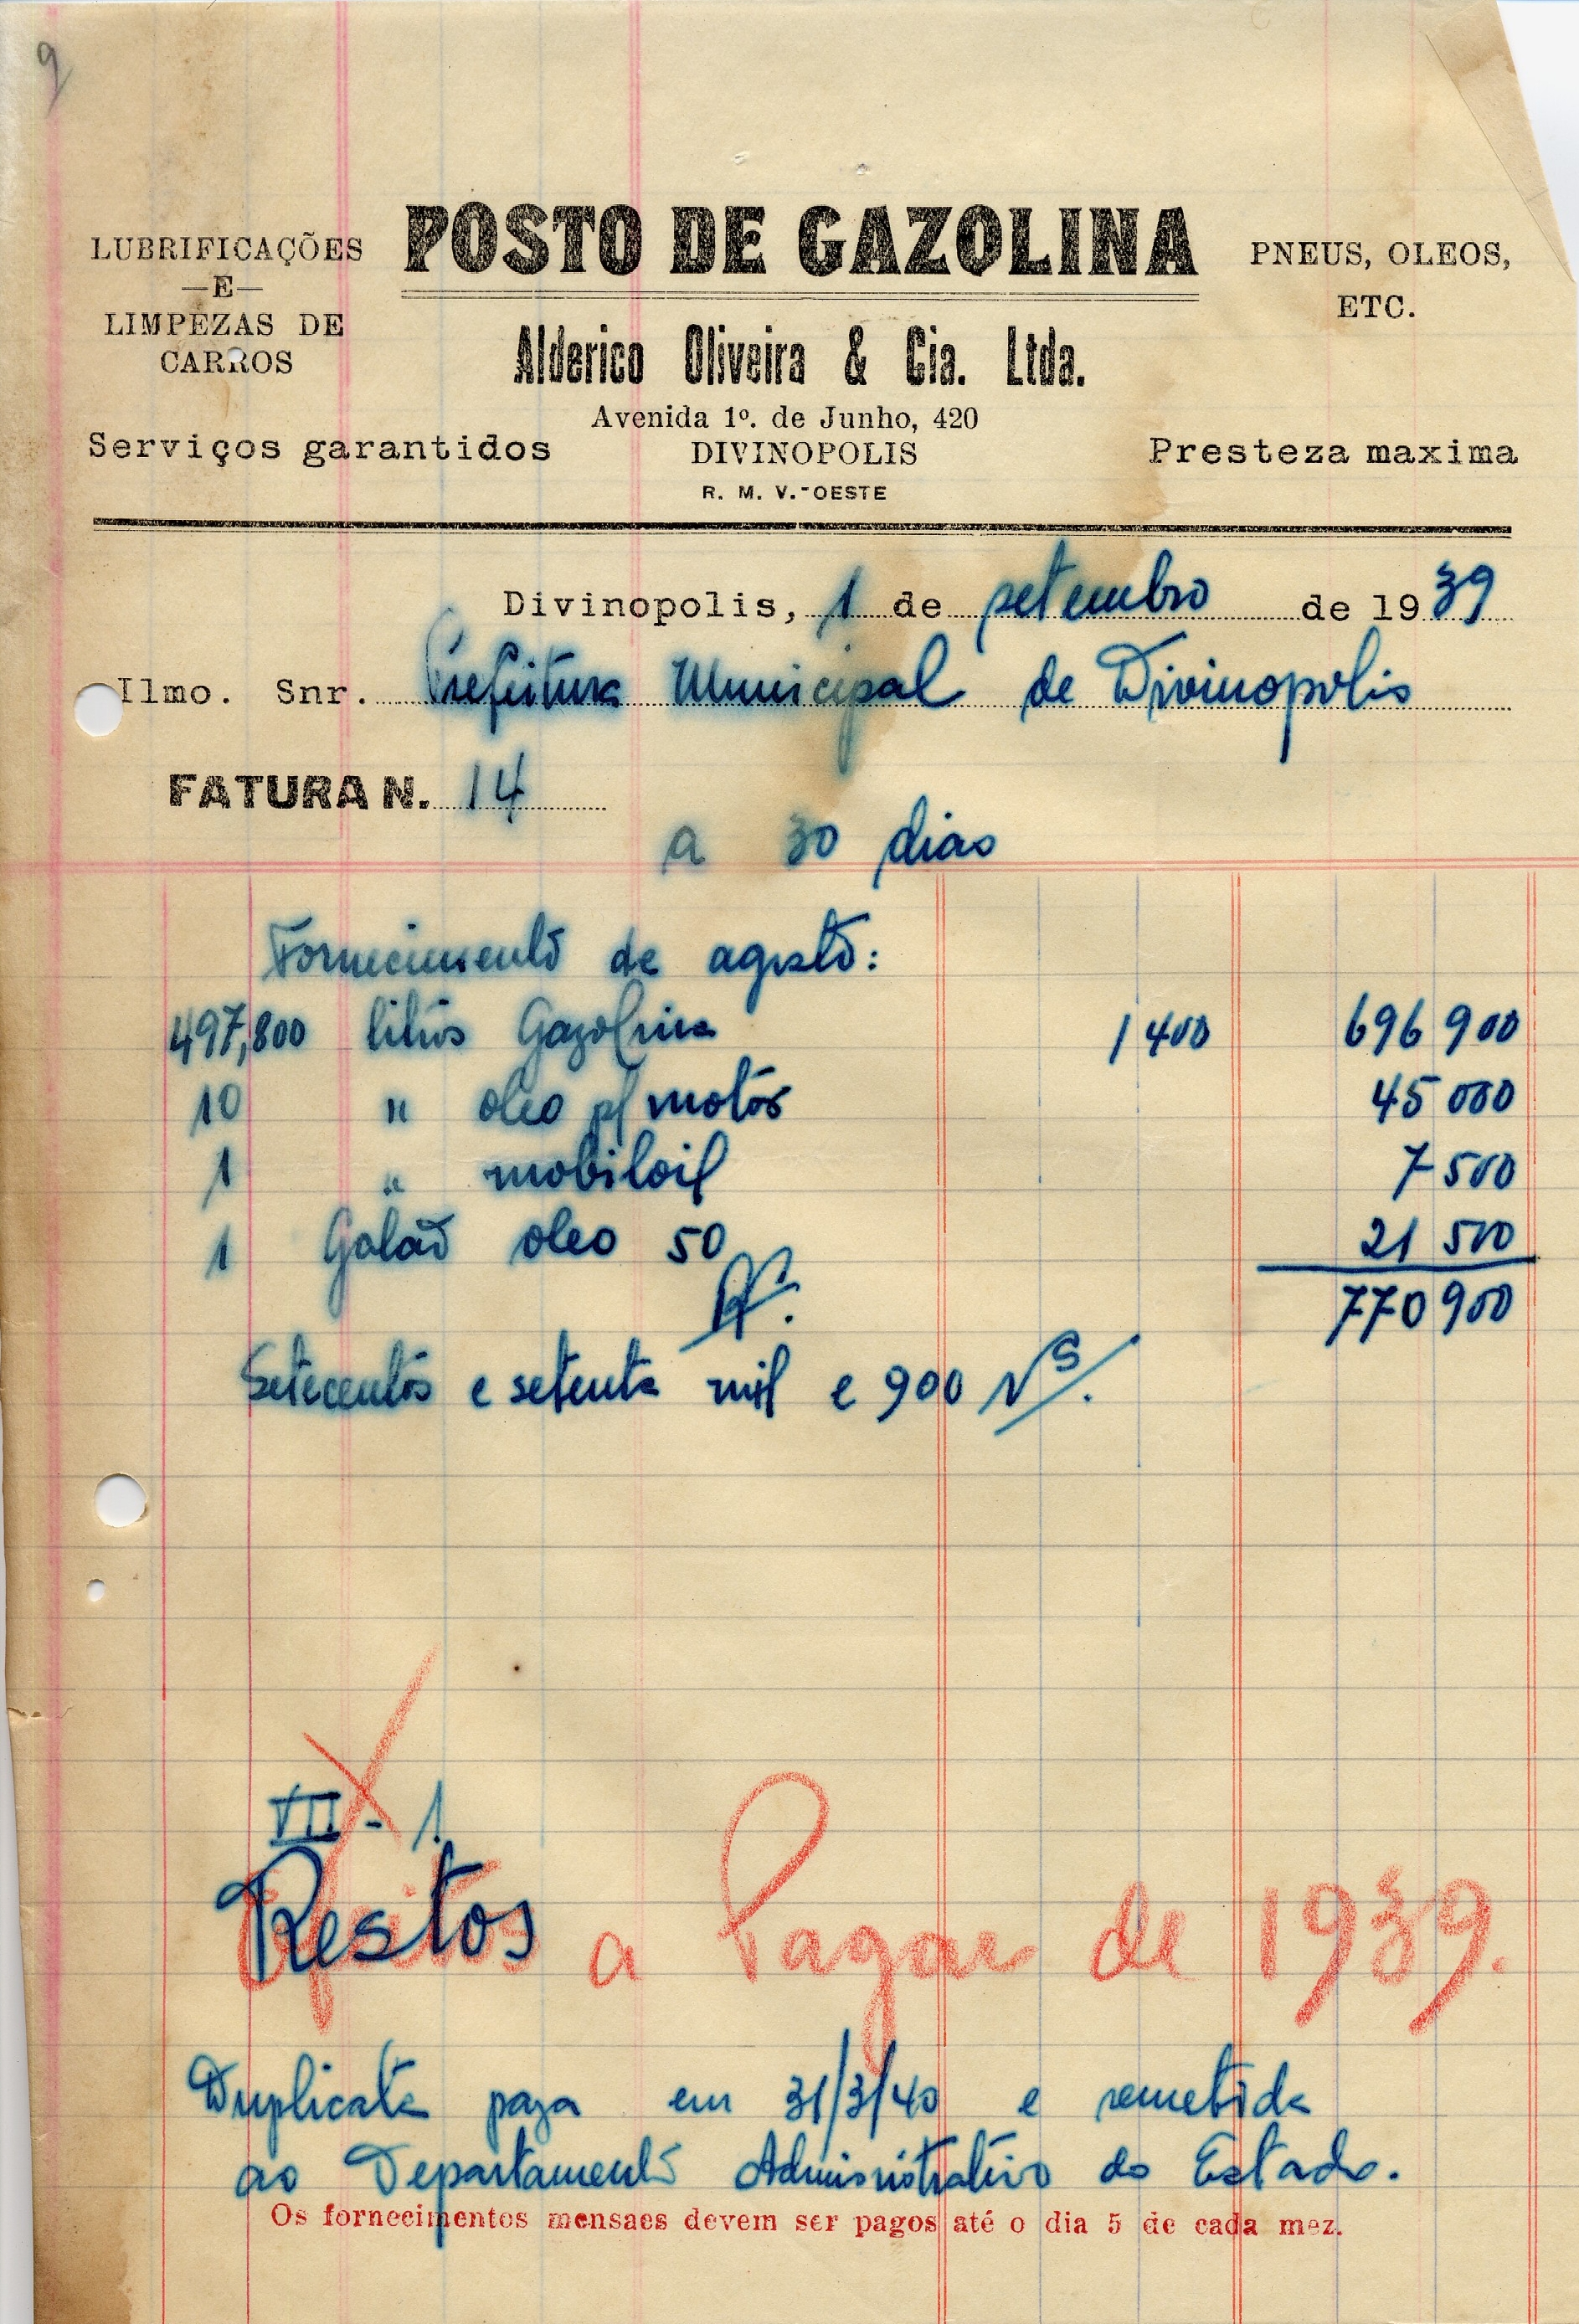 9
POSTO DE GAZOLINA
LUBRIFICAÇÕES
—E—
LIMPEZAS DE
CARROS
PNEUS, OLEOS,
ETC.
Alderico Oliveira & Cia. Ltda.
Avenida 1º. de Junho, 420
Serviços garantidos DIVINOPOLIS Presteza maxima
R. M. V.-OESTE
Divinopolis, 1 de setembro de 1939
Ilmo. Snr. Prefeitura Municipal de Divinopolis
FATURA N. 14
a 30 dias
Fornecimento de agosto:
497,800 litros Gazolina 1 400 696 900
10 " oleo p/ motor 45 000
1 " mobiloil 7 500
1 Galão oleo 50 21 500
Rs. 770 900
Setecentos e setenta mil e 900 rs.
VII - 1
Restos a Pagar de 1939.
Duplicata paga em 31/3/40 e remetida
ao Departamento Administrativo do Estado.
Os fornecimentos mensaes devem ser pagos até o dia 5 de cada mez.